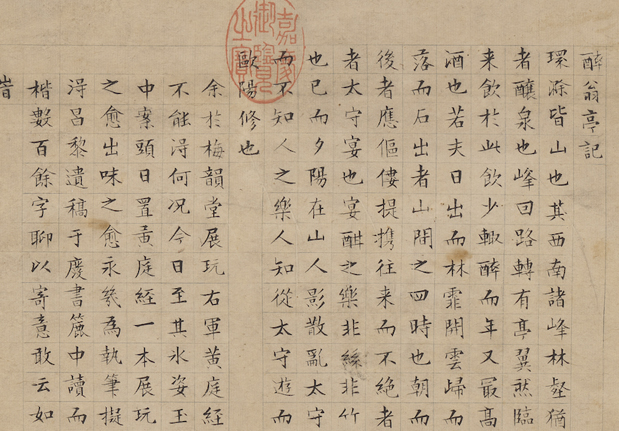 醉翁亭記
環滁皆山也其西南諸峰林壑猶
者釀泉也峰回路轉有亭翼然臨
来飲於此飲少輒醉而年又最高
酒也若夫日出而林霏開雲歸而
落而石出者山間之四時也朝而
後者應傴僂提携往来而不絶者
者太守宴也宴酣之樂非絲非竹
也已而夕陽在山人影散亂太守
而不知人之樂人知從太守遊而
歐陽修也
余於梅韻堂展玩右軍黄庭經
不能淂何況今日至其氷姿玉
中案頭日置黄庭經一本展玩
之愈出味之愈永幾為執筆擬
淂昌黎遺稿于慶書簏中讀而
楷數百餘字聊以寄意敢云如
嘉慶御覽之寶